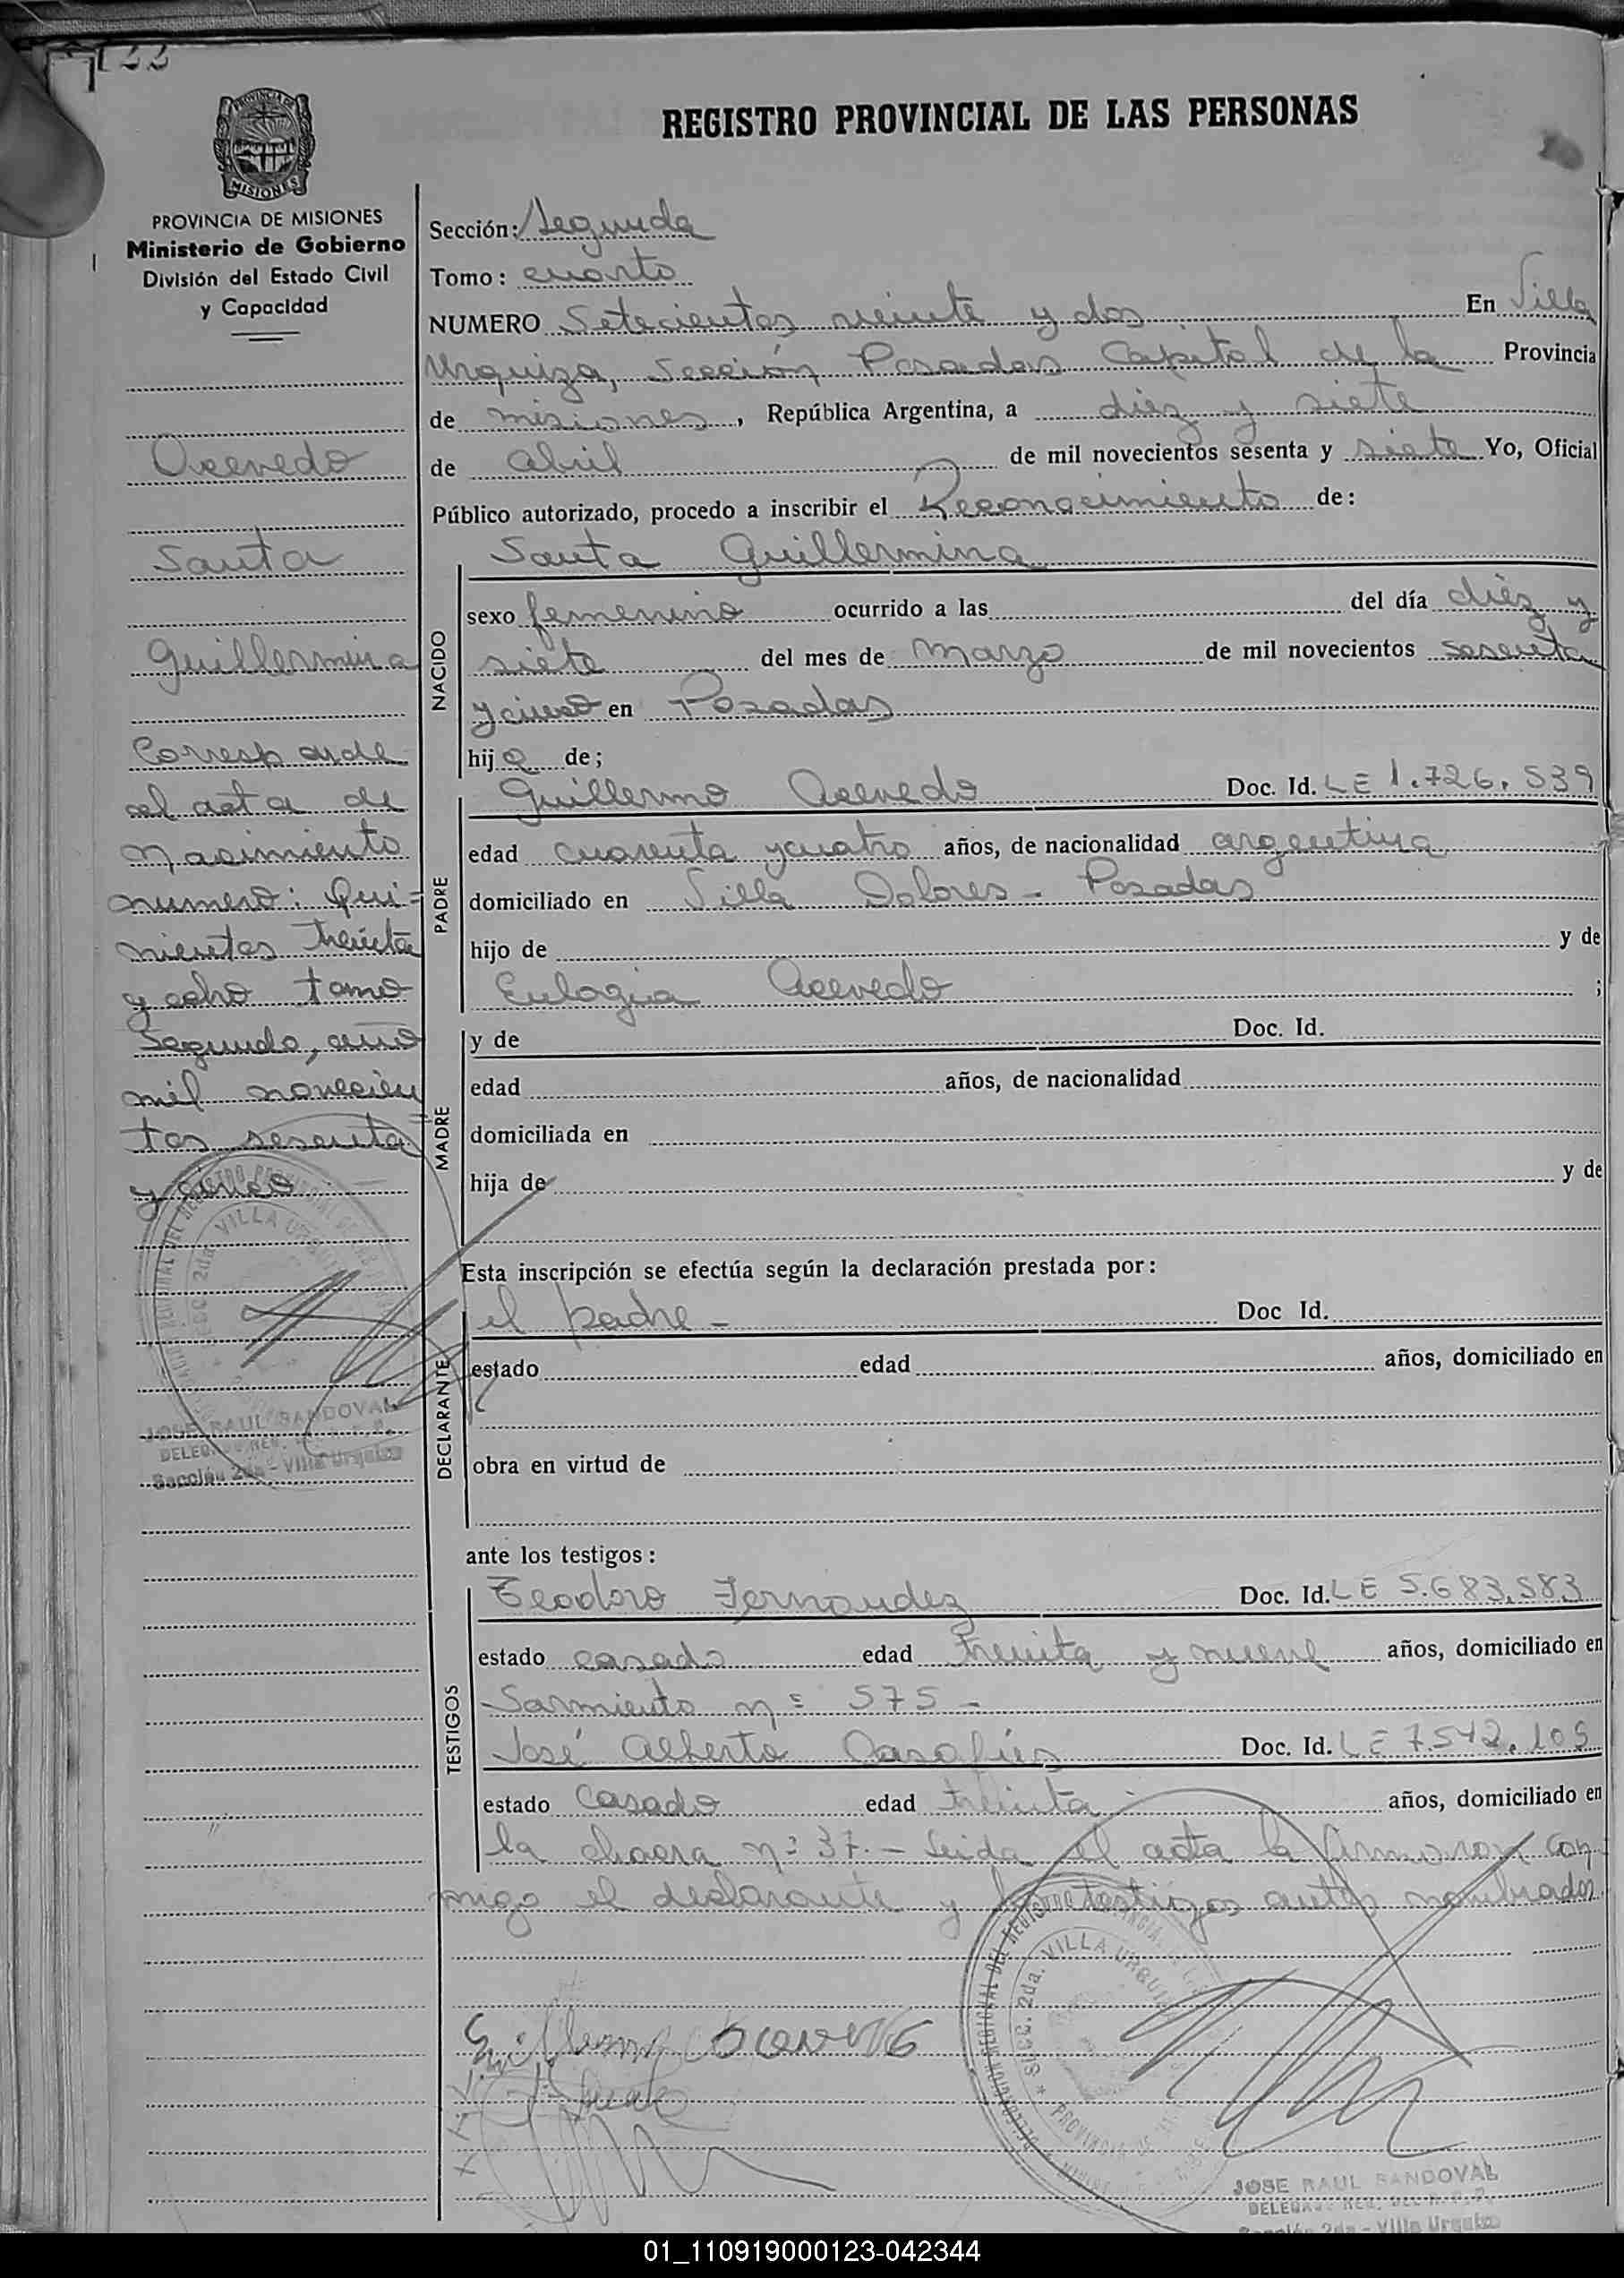 722
PROVINCIA DE
MISIONES
REGISTRO PROVINCIAL DE LAS PERSONAS
PROVINCIA DE MISIONES
Ministerio de Gobierno
División del Estado Civil
y Capacidad
Acevedo
Santa
Guillermina
Corresponde
al acta de
nacimiento
numero: Qui-
nientos treinta
y ocho tomo
Segundo, año
mil novecien
tos sesenta
y cinco
VILLA URQUI
JOSE RAUL SANDOVAL
Sección 2da - Villa Urquiza
Sección: Segunda
Tomo: cuarto
NUMERO Setecientos veinte y dos En Villa
Urquiza, Sección Posadas Capital de la Provincia
de misiones, República Argentina, a diez y siete
de abril de mil novecientos sesenta y siete Yo, Oficial
Público autorizado, procedo a inscribir el Reconocimiento de:
Santa Guillermina
NACIDO
sexo femenino ocurrido a las del día diez y
siete del mes de Marzo de mil novecientos sesenta
y cinco en Posadas
hija de;
PADRE
Guillermo Acevedo Doc. Id. LE 1.726.539
edad cuarenta y cuatro años, de nacionalidad argentina
domiciliado en Villa Dolores - Posadas
hijo de y de
Eulogia Acevedo ;
MADRE
y de Doc. Id.
edad años, de nacionalidad
domiciliada en
hija de y de
Esta inscripción se efectúa según la declaración prestada por:
DECLARANTE
el padre - Doc Id.
estado edad años, domiciliado en
obra en virtud de
ante los testigos:
TESTIGOS
Teodoro Fernandez Doc. Id. LE 5.683.583
estado casado edad treinta y nueve años, domiciliado en
Sarmiento nº 575 -
José Alberto Doc. Id. LE 7.542.109
estado Casado edad treinta años, domiciliado en
la chacra nº 37. - Leida el acta la firmaron con
migo el declarante y los testigos antes nombrados
Guillermo Acevedo
SECC. 2da. VILLA URQUIZA
JOSE RAUL SANDOVAL
Sección 2da - Villa Urquiza
01_110919000123-042344